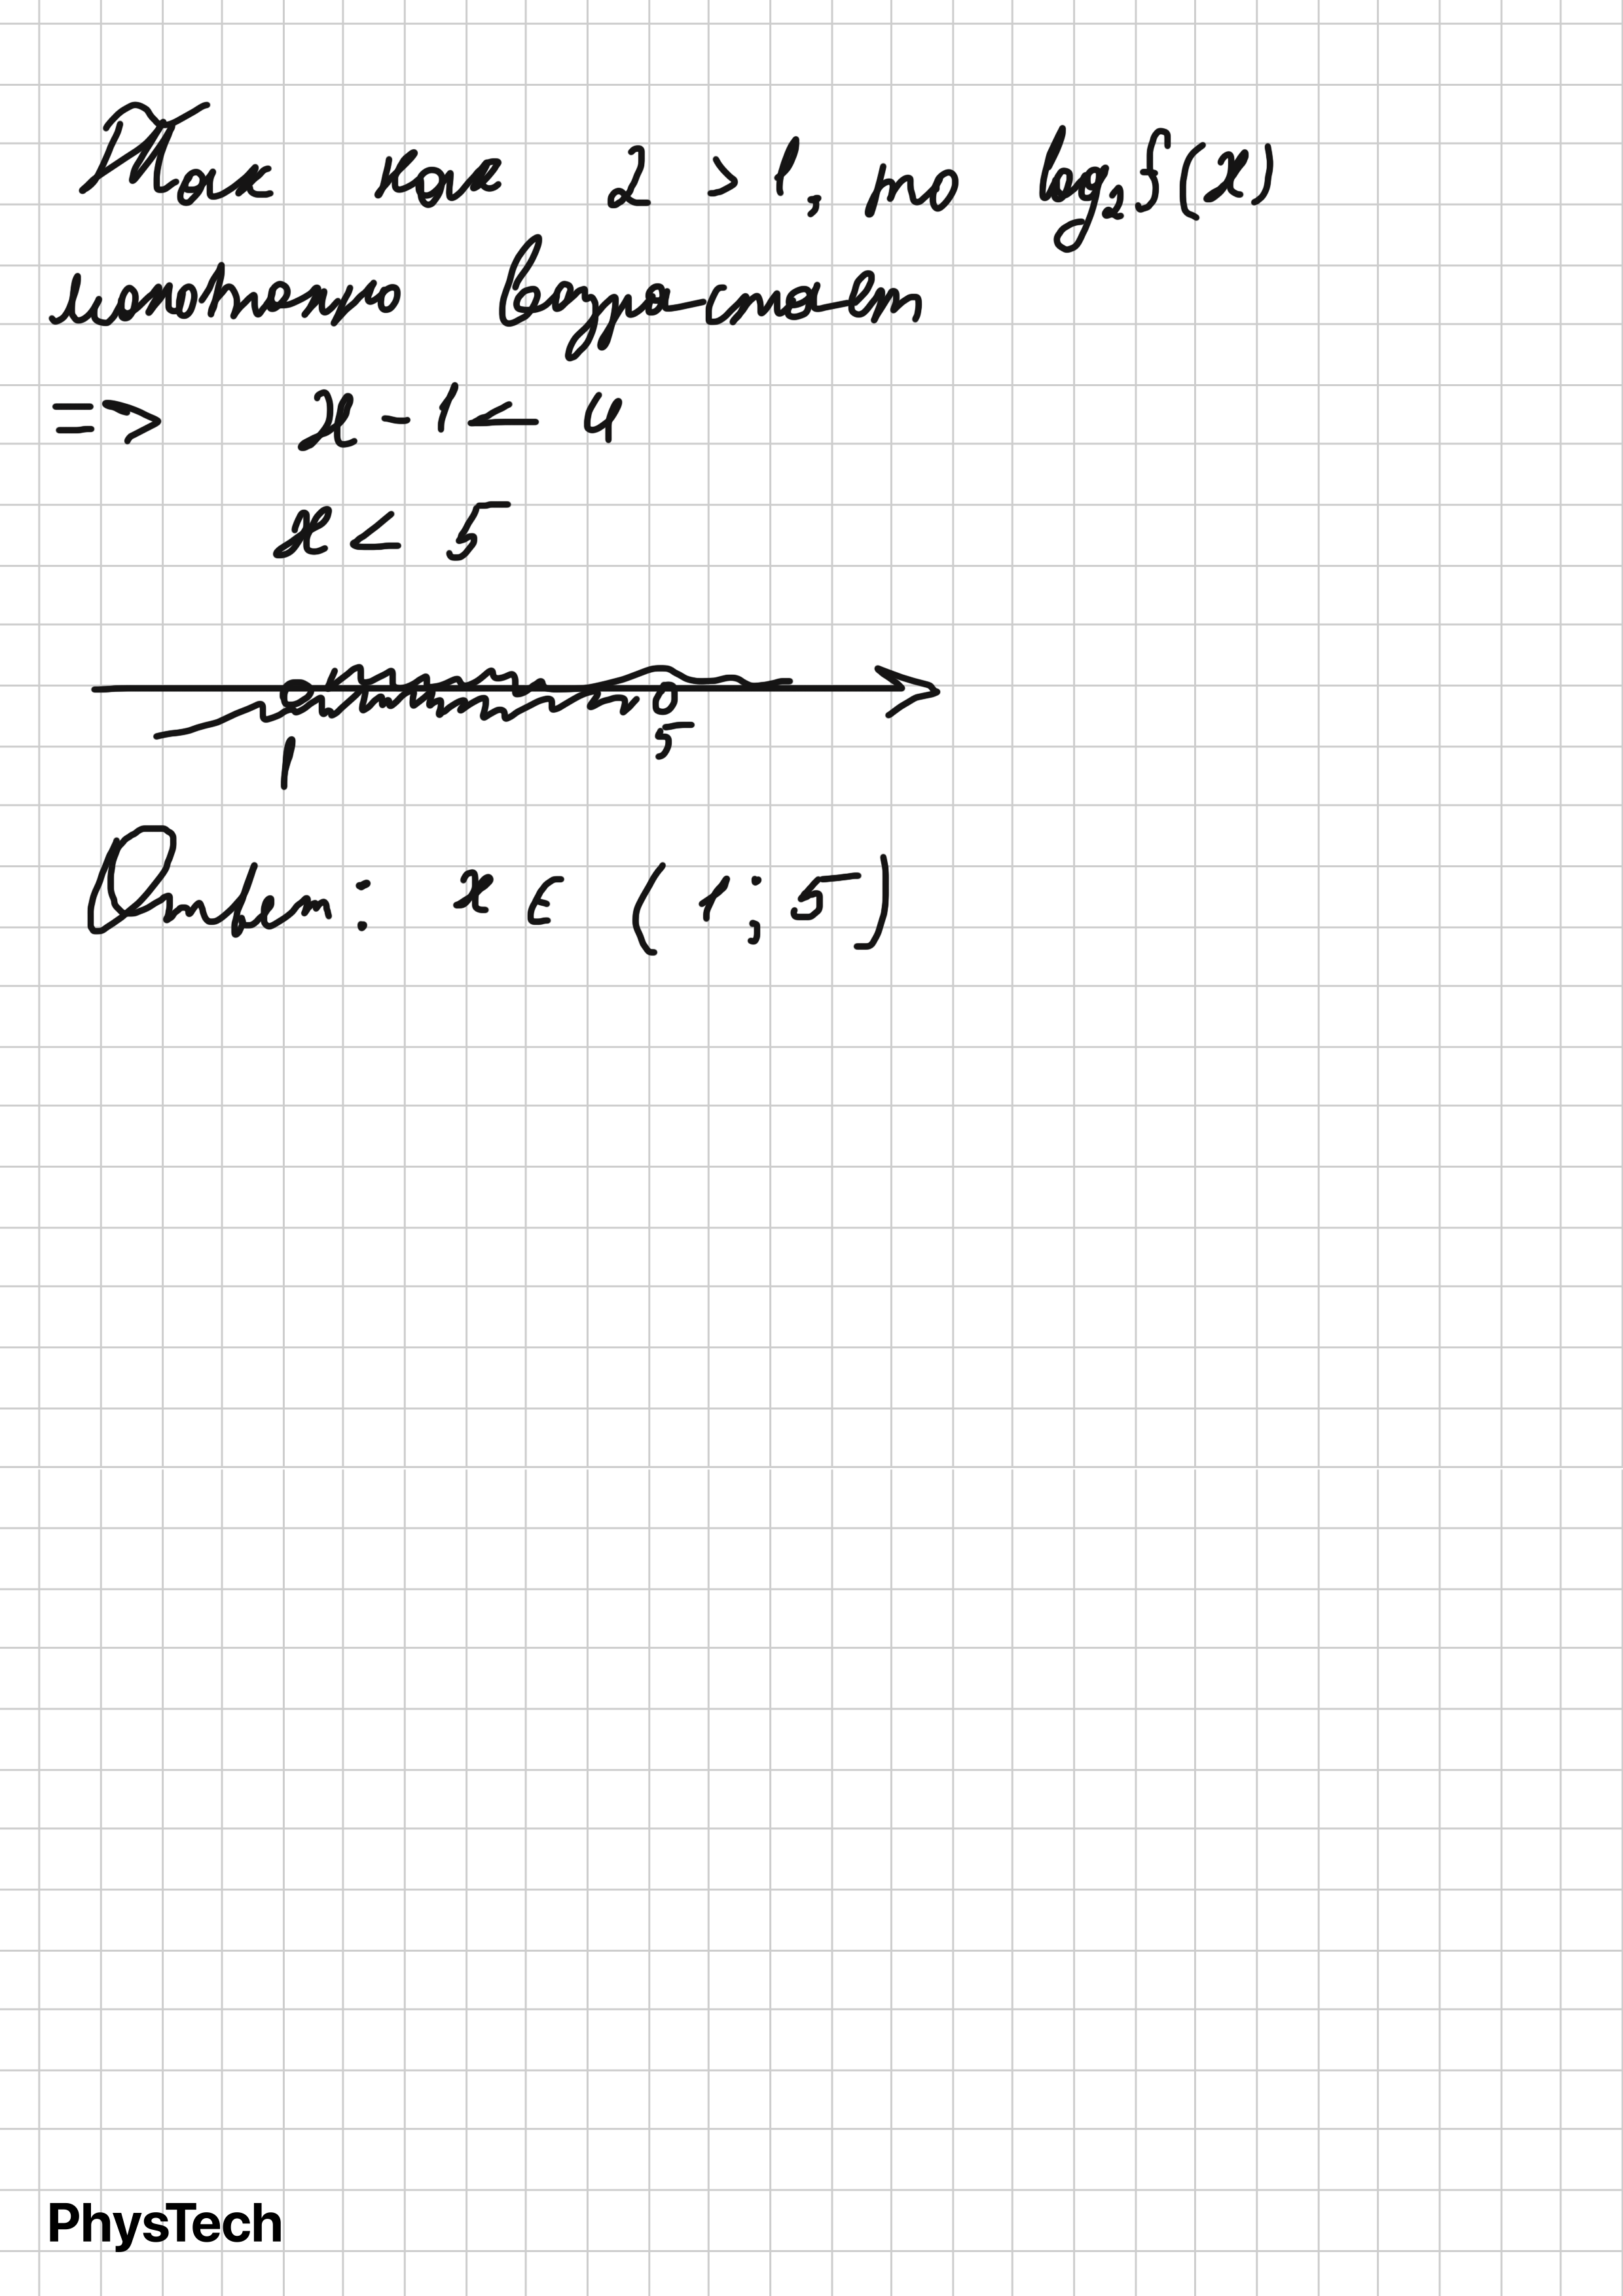 Так как 2 > 1, то log₂f(x)
монотонно возрастает
=> x - 1 < 4
x < 5
1 5
Ответ: x ∈ (1; 5)
PhysTech